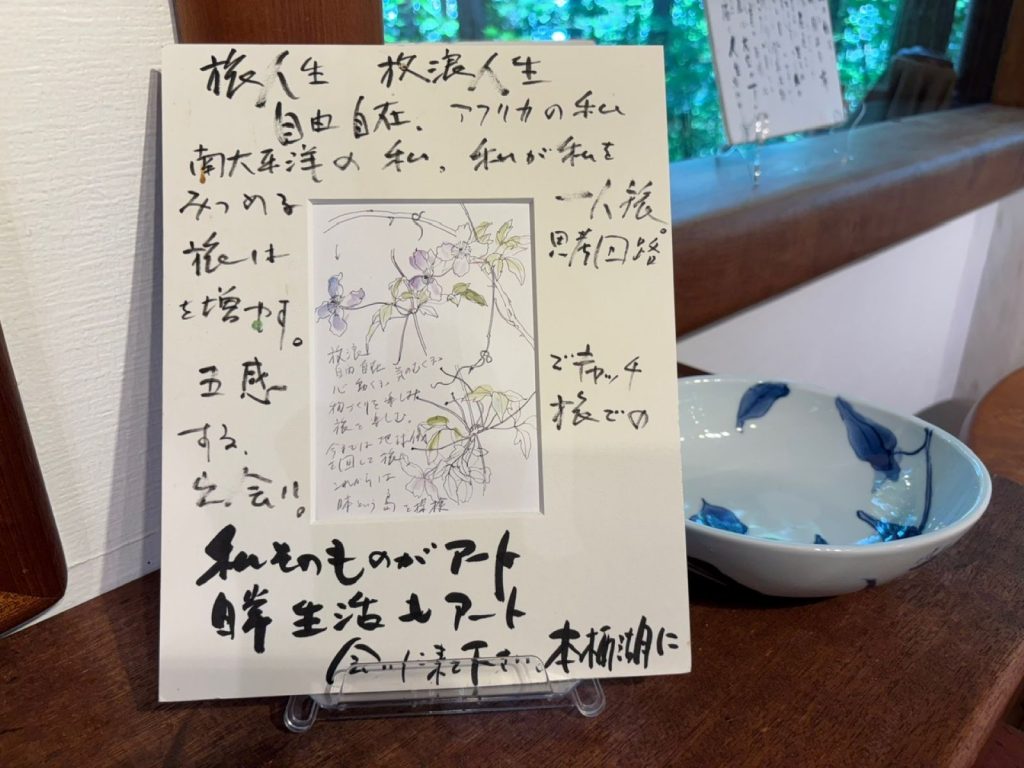 旅人生 放浪人生
自由自在、アフリカの私
南大平洋の私。私が私を
みつめる 一人旅。
旅は 思考回路
を増やす。
五感 でキャッチ
する、 旅での
出会い。
放浪
自由自在 気のむくまま
心動くまま
物づくりを楽しみ
旅を楽しむ。
今までは地球儀
を回して旅
これからは
日本という島を探検
私そのものがアート
日常生活もアート
会いに来て下さい、本栖湖に